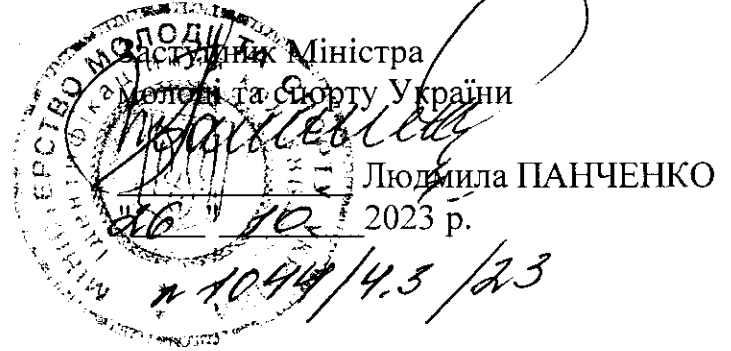 Заступник Міністра
молоді та спорту України
Людмила ПАНЧЕНКО
"26" 10. 2023 р.
n 1044/4.3 /23
МІНІСТЕРСТВО МОЛОДІ ТА СПОРТУ